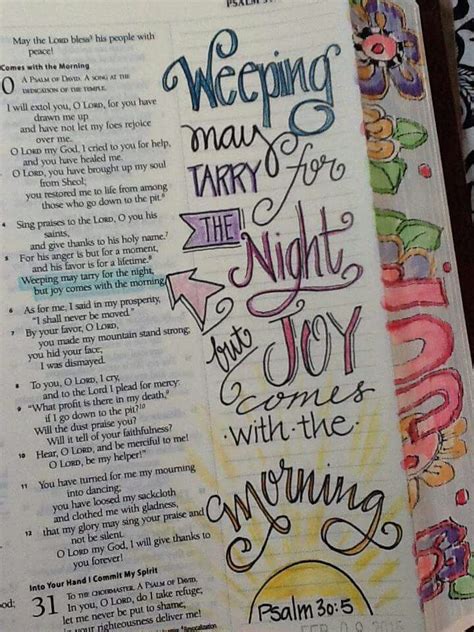 PSALM 3
May the LORD bless his people with
peace!
Comes with the Morning
0 A PSALM OF DAVID. A SONG AT THE
DEDICATION OF THE TEMPLE.
I will extol you, O LORD, for you have
drawn me up
and have not let my foes rejoice
over me.
O LORD my God, I cried to you for help,
and you have healed me.
O LORD, you have brought up my soul
from Sheol;
you restored me to life from among
those who go down to the pit.
4 Sing praises to the LORD, O you his
saints,
and give thanks to his holy name.
5 For his anger is but for a moment,
and his favor is for a lifetime.
Weeping may tarry for the night,
but joy comes with the morning.
6 As for me, I said in my prosperity,
"I shall never be moved."
7 By your favor, O LORD,
you made my mountain stand strong;
you hid your face;
I was dismayed.
8 To you, O LORD, I cry,
and to the Lord I plead for mercy:
9 "What profit is there in my death,
if I go down to the pit?
Will the dust praise you?
Will it tell of your faithfulness?
10 Hear, O LORD, and be merciful to me!
O LORD, be my helper!"
11 You have turned for me my mourning
into dancing;
you have loosed my sackcloth
and clothed me with gladness,
12 that my glory may sing your praise and
not be silent.
O LORD my God, I will give thanks to
you forever!
Into Your Hand I Commit My Spirit
31 TO THE CHOIRMASTER. A PSALM OF DAVID.
In you, O LORD, do I take refuge;
let me never be put to shame;
righteousness deliver me!
Weeping
may
TARRY for
THE
Night
but JOY
comes
·with·the·
morning
Psalm 30:5
FEB 09 2015